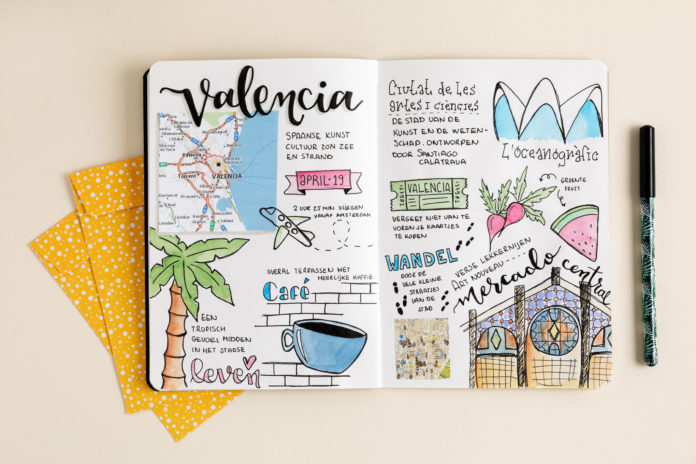 Valencia
VALENCIA
SPAANSE KUNST
CULTUUR ZON ZEE
EN STRAND
APRIL-19
2 UUR 25 MIN VLIEGEN
VANAF AMSTERDAM
OVERAL TERRASSEN MET
HEERLIJKE KOFFIE
Café
EEN
TROPISCH
GEVOEL MIDDEN
IN HET STADSE
leven
Ciutat de les
artes i ciències
DE STAD VAN DE
KUNST EN DE WETEN-
SCHAP. ONTWORPEN
DOOR SANTIAGO
CALATRAVA
L'Oceanogràfic
TICKET
VALENCIA
TICKET
VERGEET NIET VAN TE
VOREN JE KAARTJES
TE KOPEN
GROENTE
FRUIT
WANDEL
DOOR DE
VELE KLEINE
STRAATJES
VAN DE
STAD
VERSE LEKKERNIJEN
ART NOUVEAU
mercado central